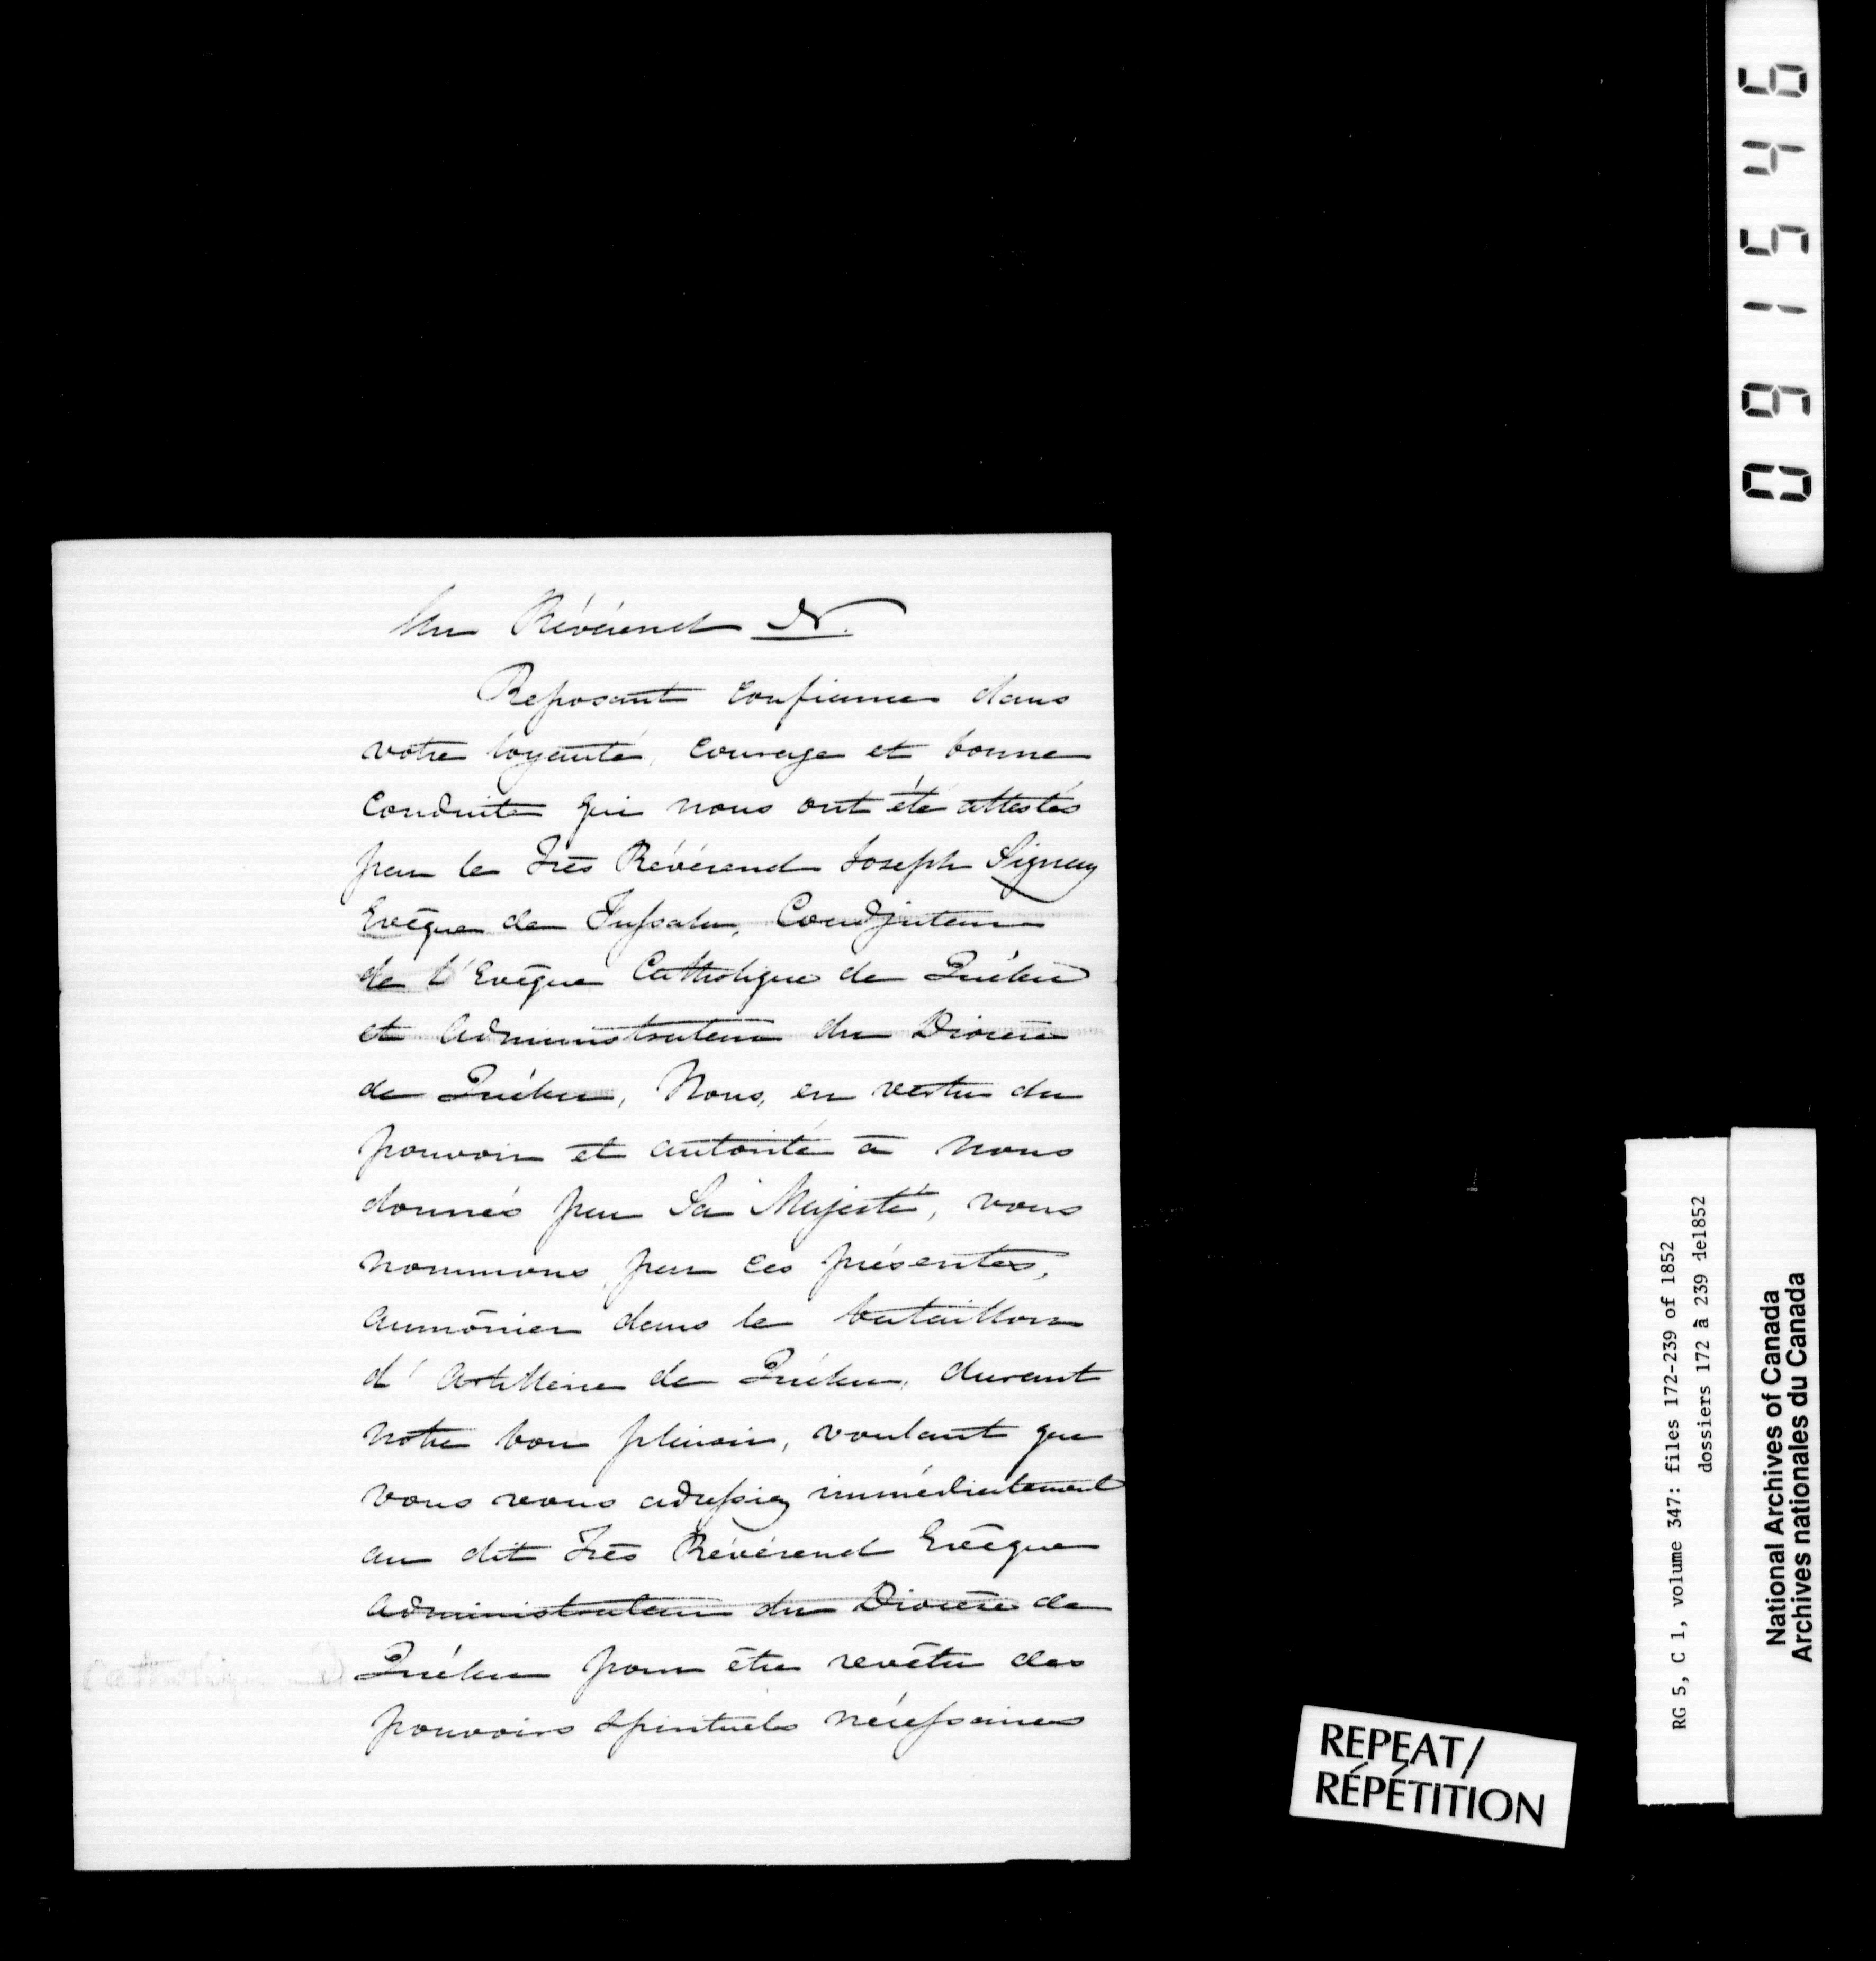 Au Révérend N.
Reposant confiance dans
votre loyauté, courage et bonne
conduite qui nous ont été attestés
par le Très Révérend Joseph Signay
Evêque de Fussala, Coadjuteur
de l'Evêque Catholique de Québec
et Administrateur du Diocèse
de Québec, Nous, en vertu du
pouvoir et autorité à nous
donnés par Sa Majesté, vous
nommons par ces présentes,
aumônier dans le bataillon
d'Artillerie de Québec, durant
notre bon plaisir, voulant que
vous vous adressiez immédiatement
au dit Très Révérend Evêque
Administrateur du Diocèse de
Québec pour être revêtu des
pouvoirs spirituels nécessaires
Catholique
091546
RG 5, C 1, volume 347: files 172-239 of 1852
dossiers 172 à 239 de1852
National Archives of Canada
Archives nationales du Canada
REPEAT/
RÉPÉTITION